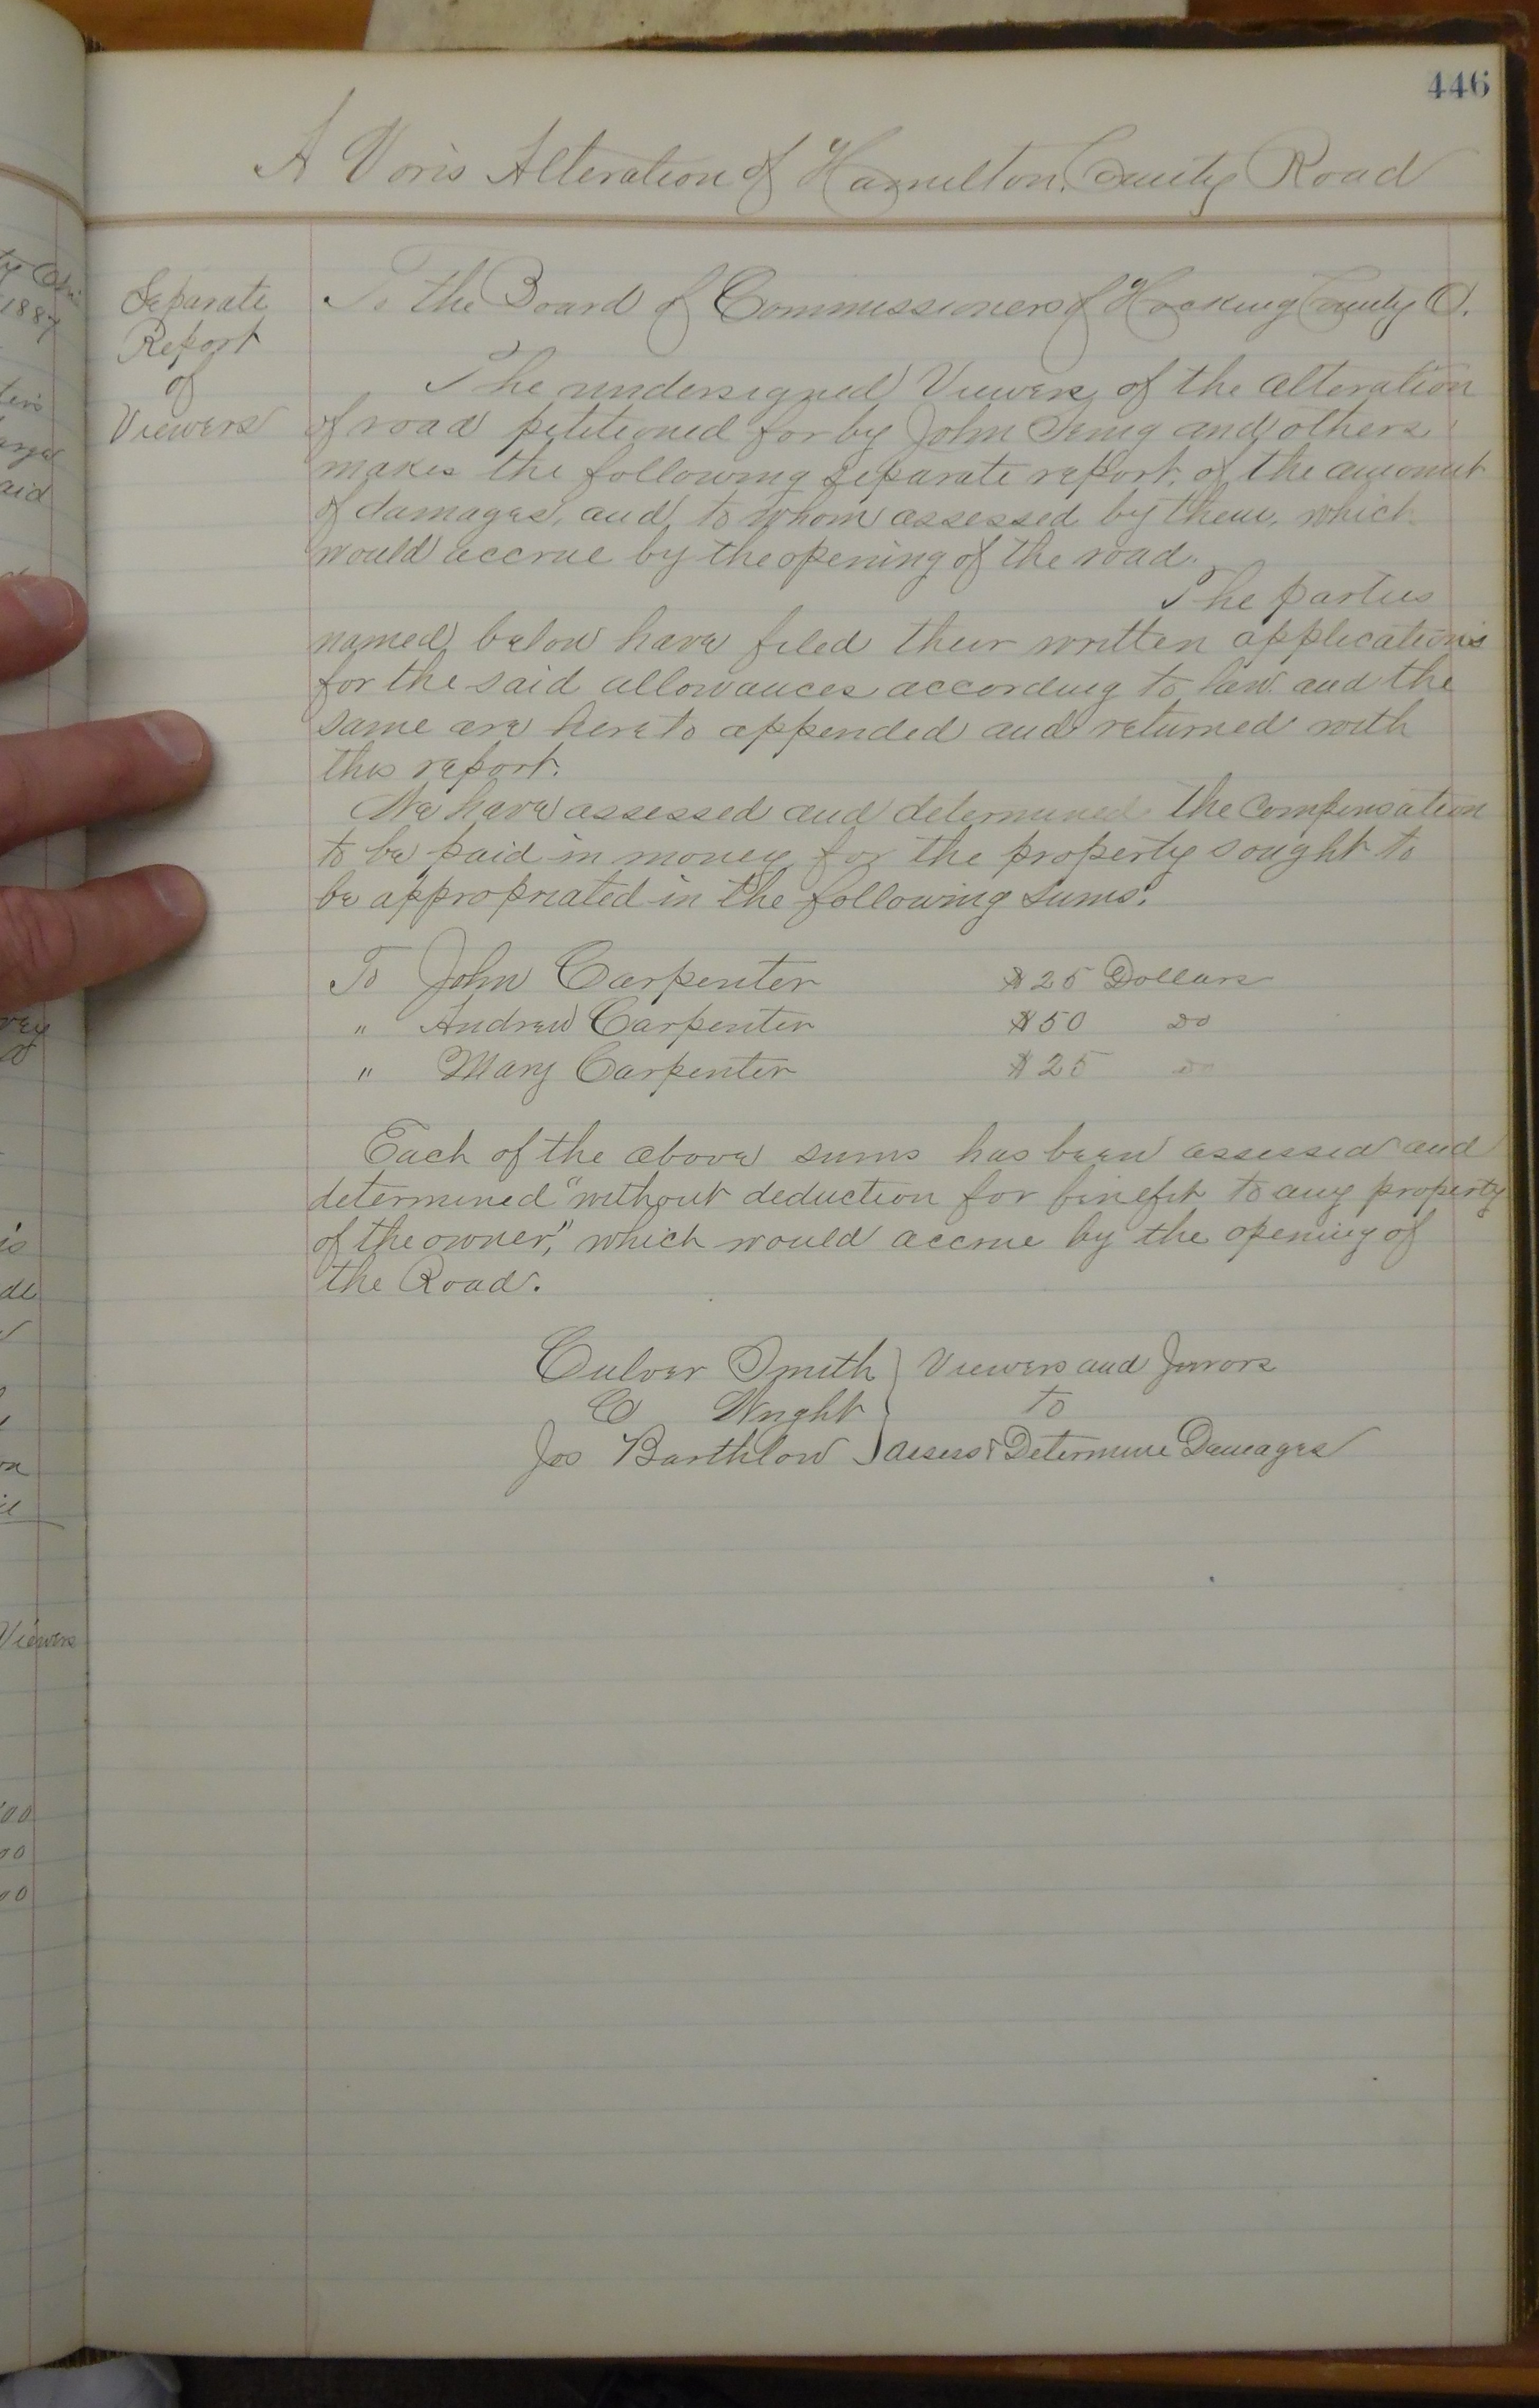 446
A Voris Alteration of Hamilton County Road
Separate
Report
of
Viewers
To the Board of Commissioners of Hocking County O.
The undersigned Viewers of the alteration
of road petitioned for by John and others
makes the following separate report, of the amount
of damages, and, to whom assessed by them, which
would accrue by the opening of the road.
The parties
named below have filed their written applications
for the said allowances according to law and the
same are hereto appended and returned with
this report.
We have assessed and determined the compensation
to be paid in money for the property sought to
be appropriated in the following sums.
To John Carpenter $25 Dollars
" Andrew Carpenter $50 do
" Mary Carpenter $25 do
Each of the above sums has been assessed and
determined "without deduction for benefit to any property
of the owner," which would accrue by the opening of
the Road.
Culver Smith } Viewers and Jurors
C Wright } to
Jos Barthlow } assess & Determine Damages
1887
Viewers